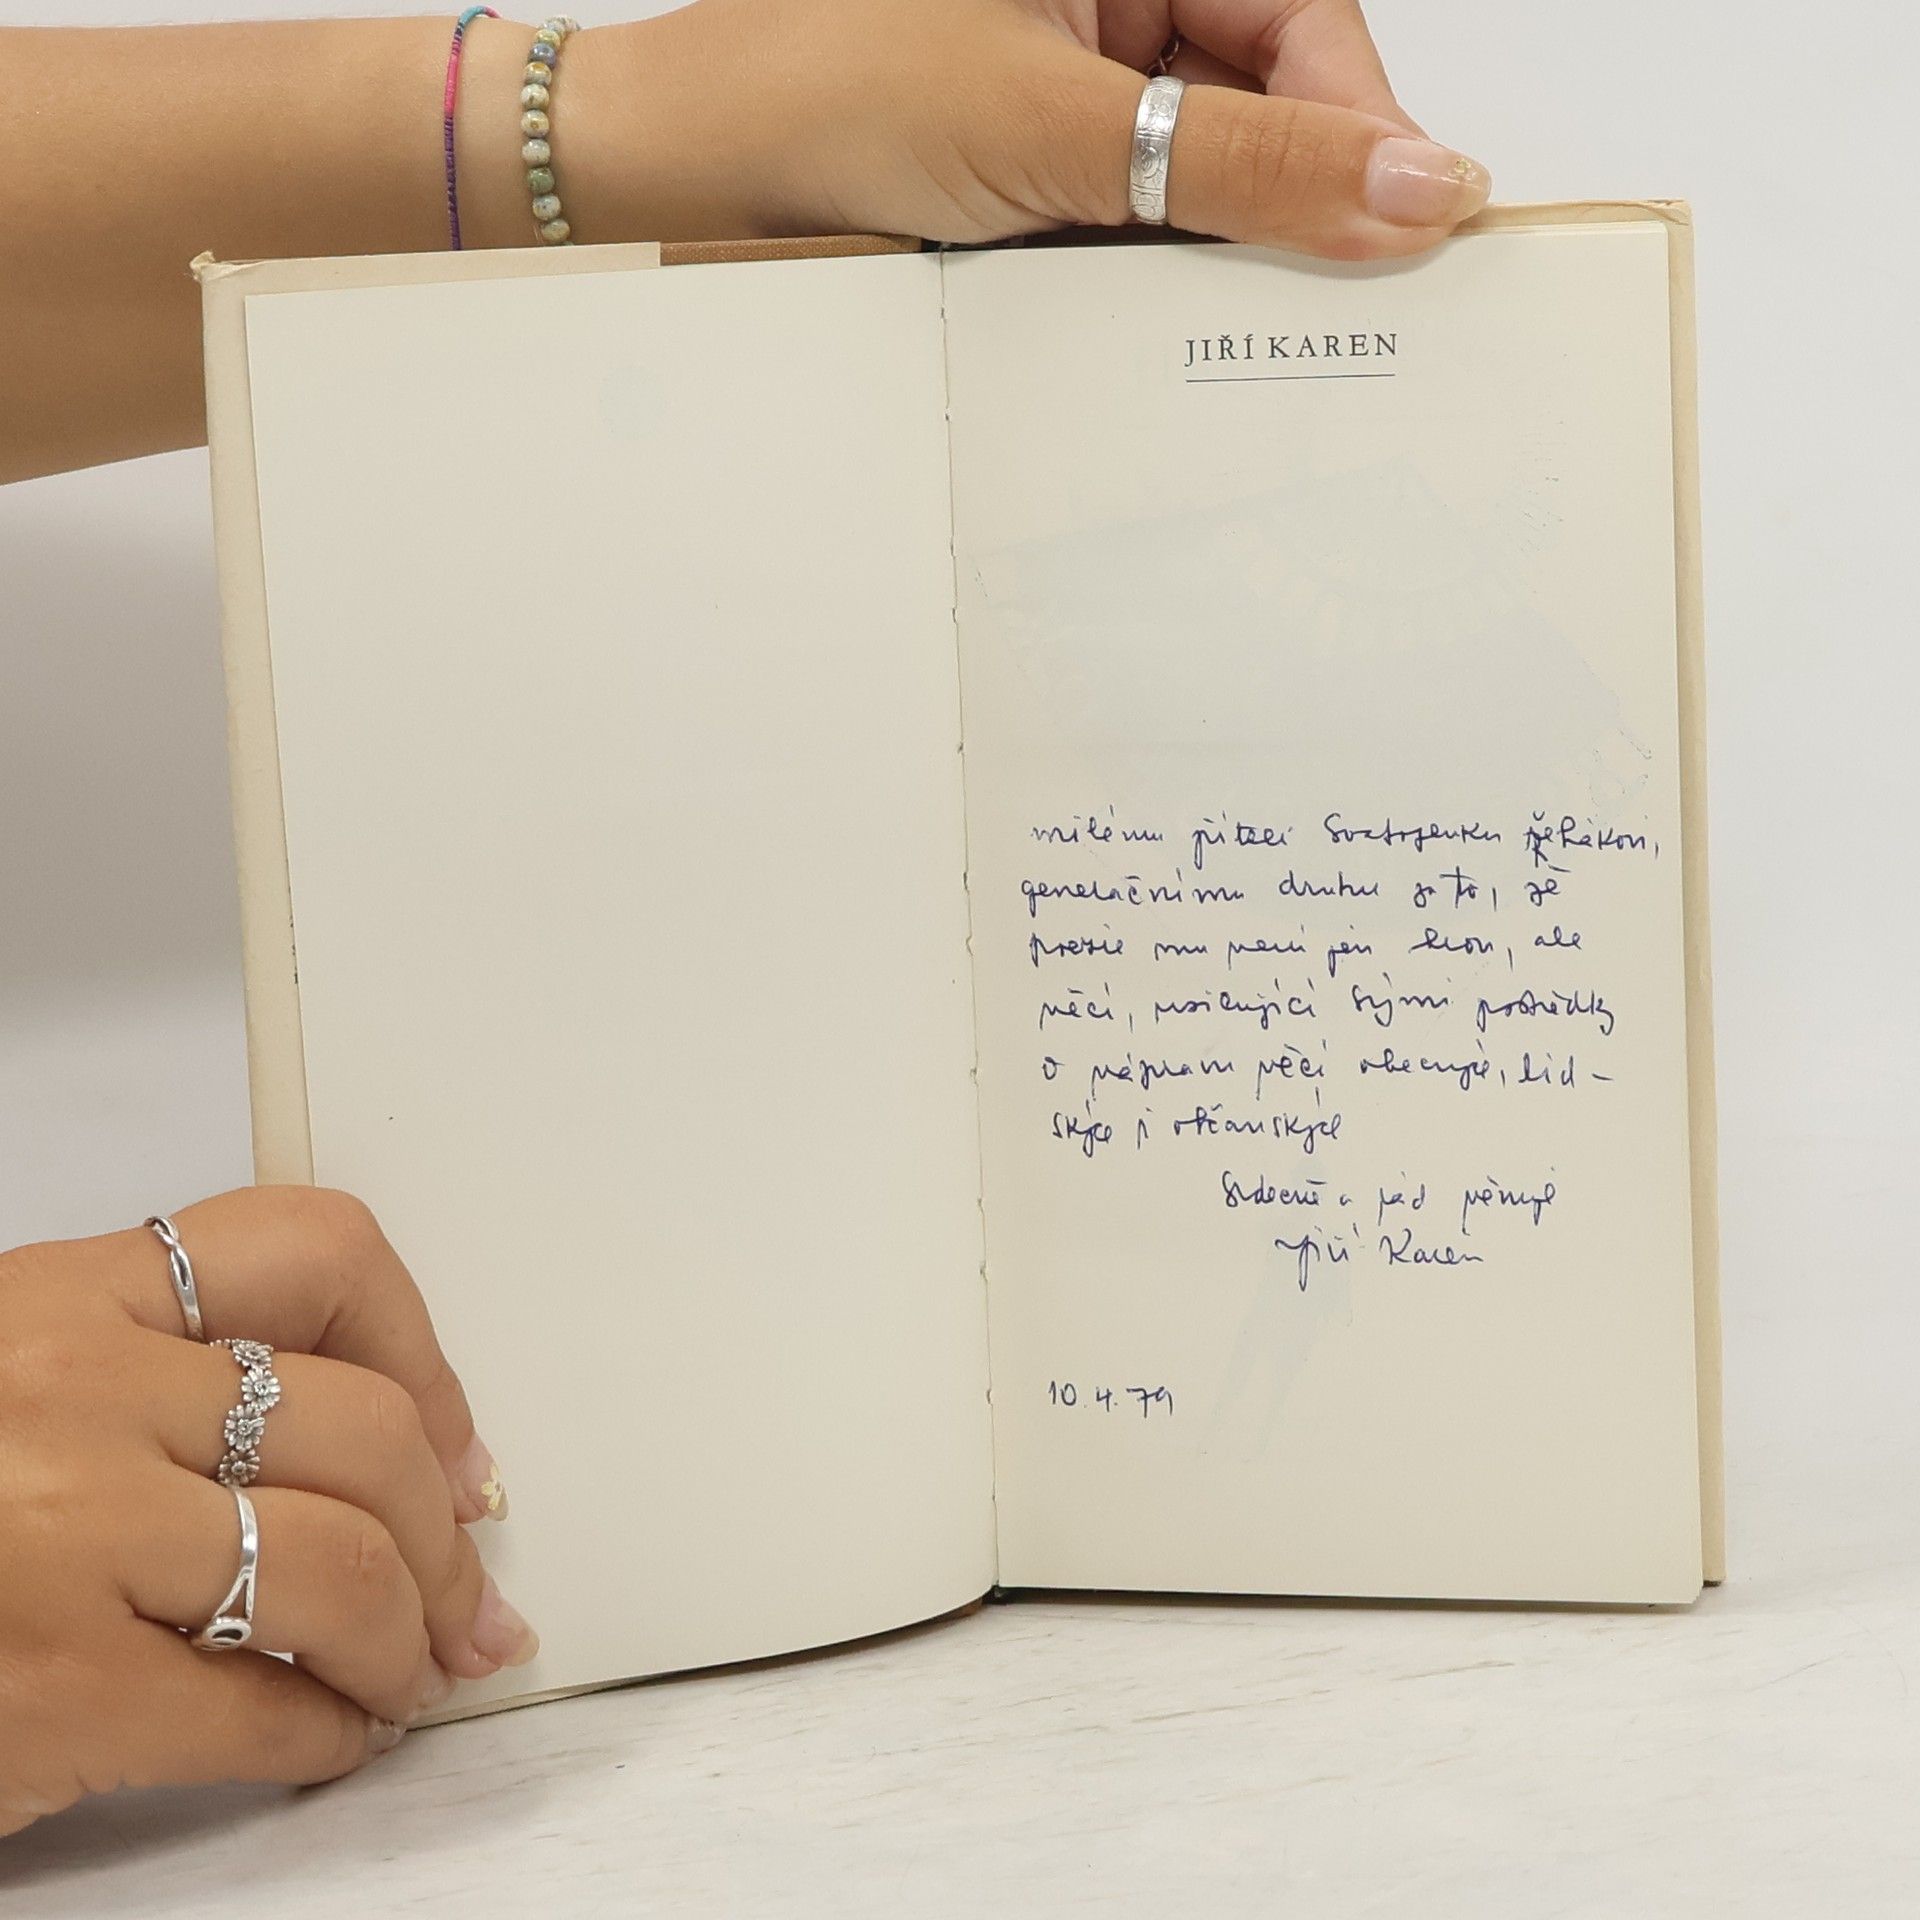 JIŘÍ KAREN
milému příteli Svatojenku Řehákovi,
generačnímu druhu za to, že
poezie mu není jen hrou, ale
věcí, usilující svými prostředky
o nápravu věcí obecných, lid-
ských i občanských
Srdečně a rád věnuje
Jiří Karen
10.4.79